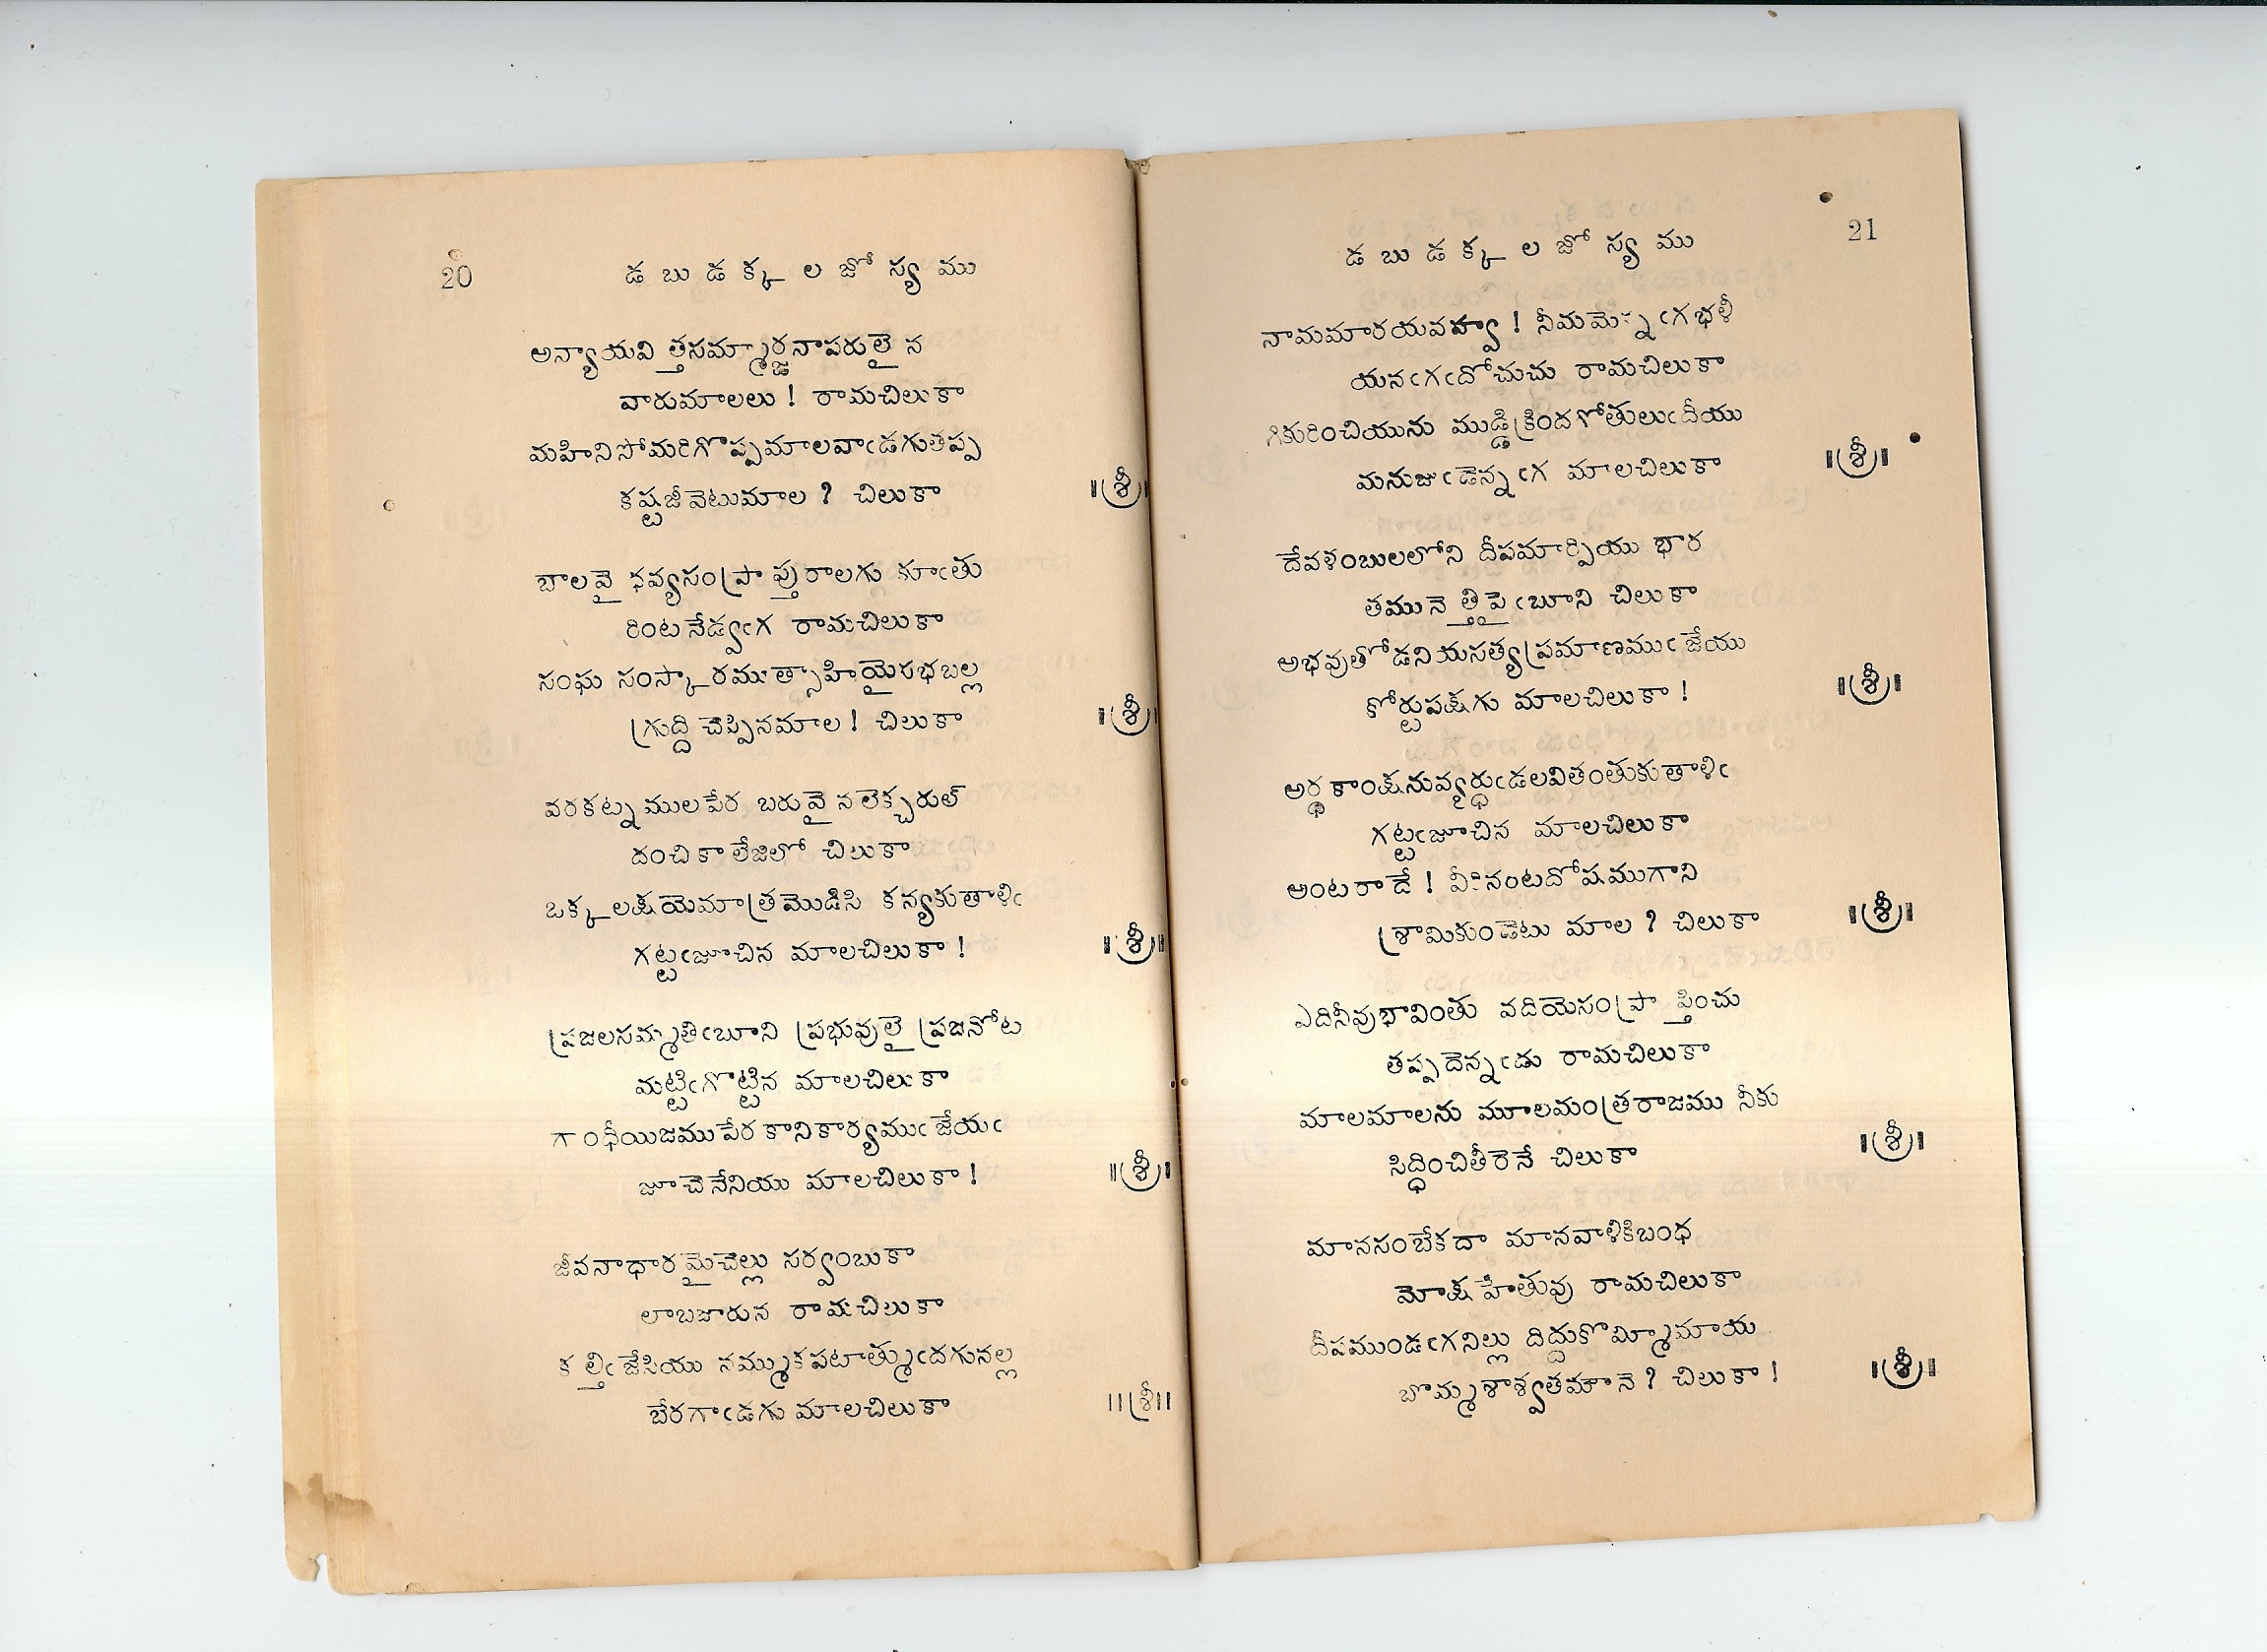 20 డ బు డ క్క ల జో స్య ము
అన్యాయవి త్తసమ్మార్జనాపరులై న
వారుమాలలు ! రామచిలుకా
మహినిసోమరిగొప్పమాలవాఁడగుతప్ప
కష్టజీవెటుమాల ? చిలుకా ॥శ్రీ॥
బాలవై నవ్యసంప్రా ప్తురాలగు కూఁతు
రింటనేడ్వఁగ రామచిలుకా
సంఘ సంస్కారముత్సాహియైసభబల్ల
గ్రుద్ది చెప్పినమాల ! చిలుకా ॥శ్రీ॥
వరకట్నములపేర బరువై నలెక్చరుల్
దంచి కాలేజిలో చిలుకా
ఒక్కలక్షయెమాత్రమొడిసి కన్యకుతాళిఁ
గట్టఁజూచిన మాలచిలుకా ! ॥శ్రీ॥
ప్రజలసమ్మతిఁబూని ప్రభువులై ప్రజనోట
మట్టిఁగొట్టిన మాలచిలుకా
గాంధీయిజముపేర కానికార్యముఁ జేయఁ
జూచెనేనియు మాలచిలుకా ! ॥శ్రీ॥
జీవనాధారమైచెల్లు సర్వంబుకా
లాబజారున రామచిలుకా
క ల్తిఁ జేసియు నమ్ముకపటాత్ముఁదగునల్ల
బేరగాఁడగు మాలచిలుకా ॥శ్రీ॥
డ బు డ క్క ల జో స్య ము 21
నామమారయవవ్వా ! నీమమెన్నఁగభళీ
యనఁగఁదోచుచు రామచిలుకా
గికురించియును ముడ్డిక్రిందగోతులుఁదీయు
మనుజుఁడెన్నఁగ మాలచిలుకా ॥శ్రీ॥
దేవళంబులలోని దీపమార్పియు భార
తమునె త్తిపైఁబూని చిలుకా
అభవుతోడనియసత్యప్రమాణముఁజేయు
కోర్టుపక్షగు మాలచిలుకా ! ॥శ్రీ॥
అర్థకాంక్షనువ్యర్థుఁడలవితంతుకుతాళిఁ
గట్టఁజూచిన మాలచిలుకా
అంటరాదే ! వీరినంటదోషముగాని
శ్రామికుండెటు మాల ? చిలుకా ॥శ్రీ॥
ఎదినీవుభావింతు వదియెసంప్రా ప్తించు
తప్పదెన్నఁడు రామచిలుకా
మాలమాలను మూలమంత్రరాజము నీకు
సిద్ధించితీరెనే చిలుకా ॥శ్రీ॥
మానసంబేకదా మానవాళికిబంధ
మోక్షహేతువు రామచిలుకా
దీపముండఁగనిల్లు దిద్దుకొమ్మీమాయ
బొమ్మశాశ్వతమౌనె ? చిలుకా ! ॥శ్రీ॥